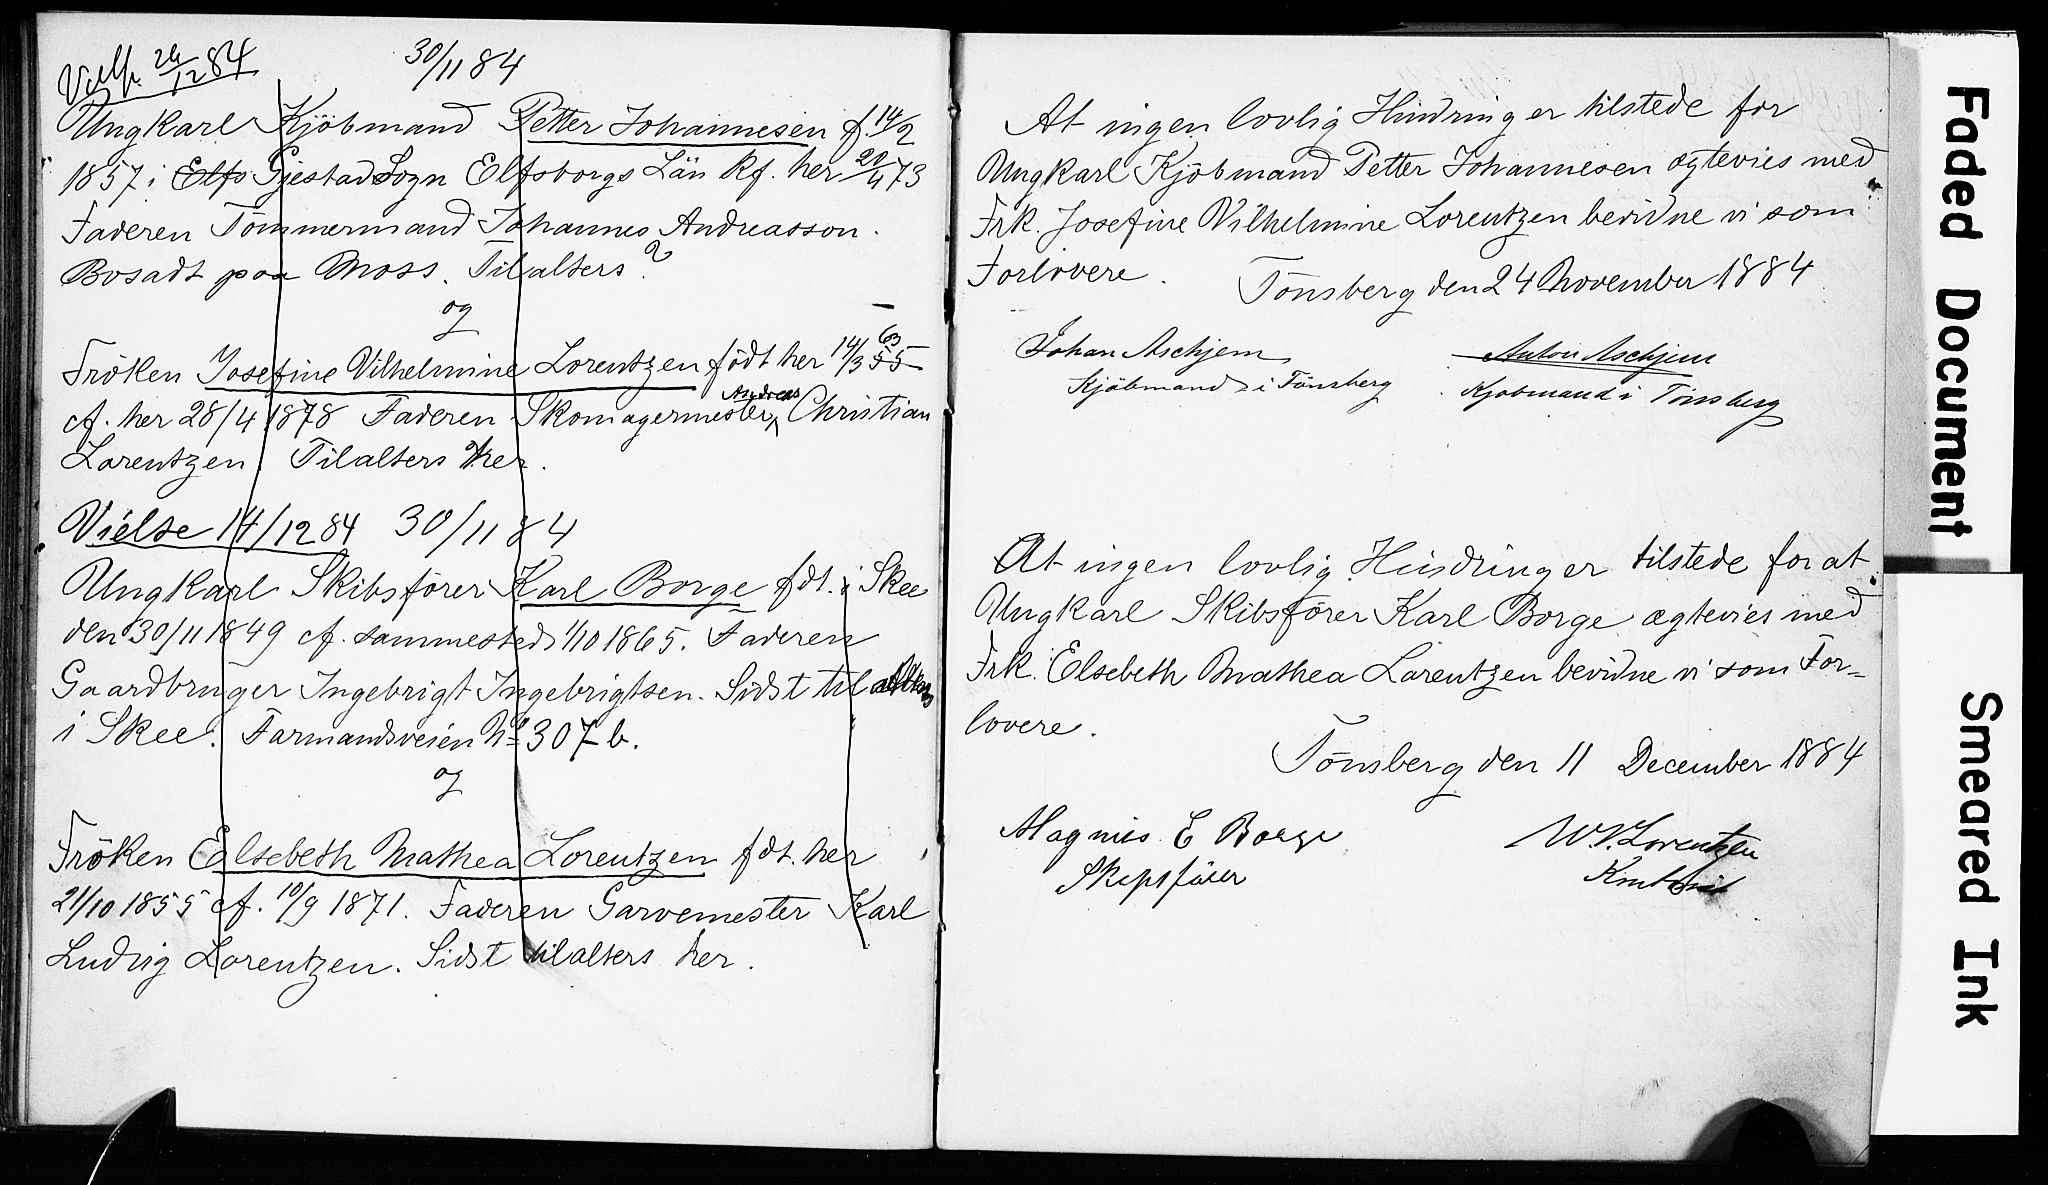 Vielse 26/12 84 30/11 84
Ungkarl Kjöbmand Petter Johannesen f. 14/2
1857 i Elfs Gjestad Sogn Elfsborgs Län Kf. her 20/4 73
Faderen Tømmermand Johannes Andreasson.
Bosadt paa Moss. Tilalters?
og
Fröken Josefine Vilhelmine Lorentzen född her 14/3 55 63
cf. her 28/4 1878 Faderen Skomagermester Andreas Christian
Lorentzen. Tilalters her.
Vielse 14/12 84 30/11 84
Ungkarl Skibsfører Karl Borge fdt. i Skee
den 30/11 1849 cf. sammesteds 1/10 1865. Faderen
Gaardbruger Ingebrigt Ingebrigtsen. Sidst til alters
i Skee. Farmandsveien No 307 b.
og
Fröken Elsebeth Mathea Lorentzen fdt. her
21/10 1855 cf. 10/9 1871. Faderen Garvemester Karl
Ludvig Lorentzen. Sidst tilalters her.
At ingen lovlig Hindring er tilstede for
Ungkarl Kjöbmand Petter Johannesen ægtevies med
Frk. Josefine Vilhelmine Lorentzen bevidne vi som
Forlovere.
Tönsberg den 24 November 1884
Johan Aschjem Anton Aschjem
Kjöbmand i Tönsberg Kjøbmand i Tönsberg
At ingen lovlig Hindring er tilstede for at
Ungkarl Skibsfører Karl Borge ægtevies med
Frk. Elsebeth Mathea Lorentzen bevidne vi som For-
lovere.
Tönsberg den 11 December 1884
Magnus E Borge W. V. Lorentzen
Skepsförer
Faded Document
Smeared Ink